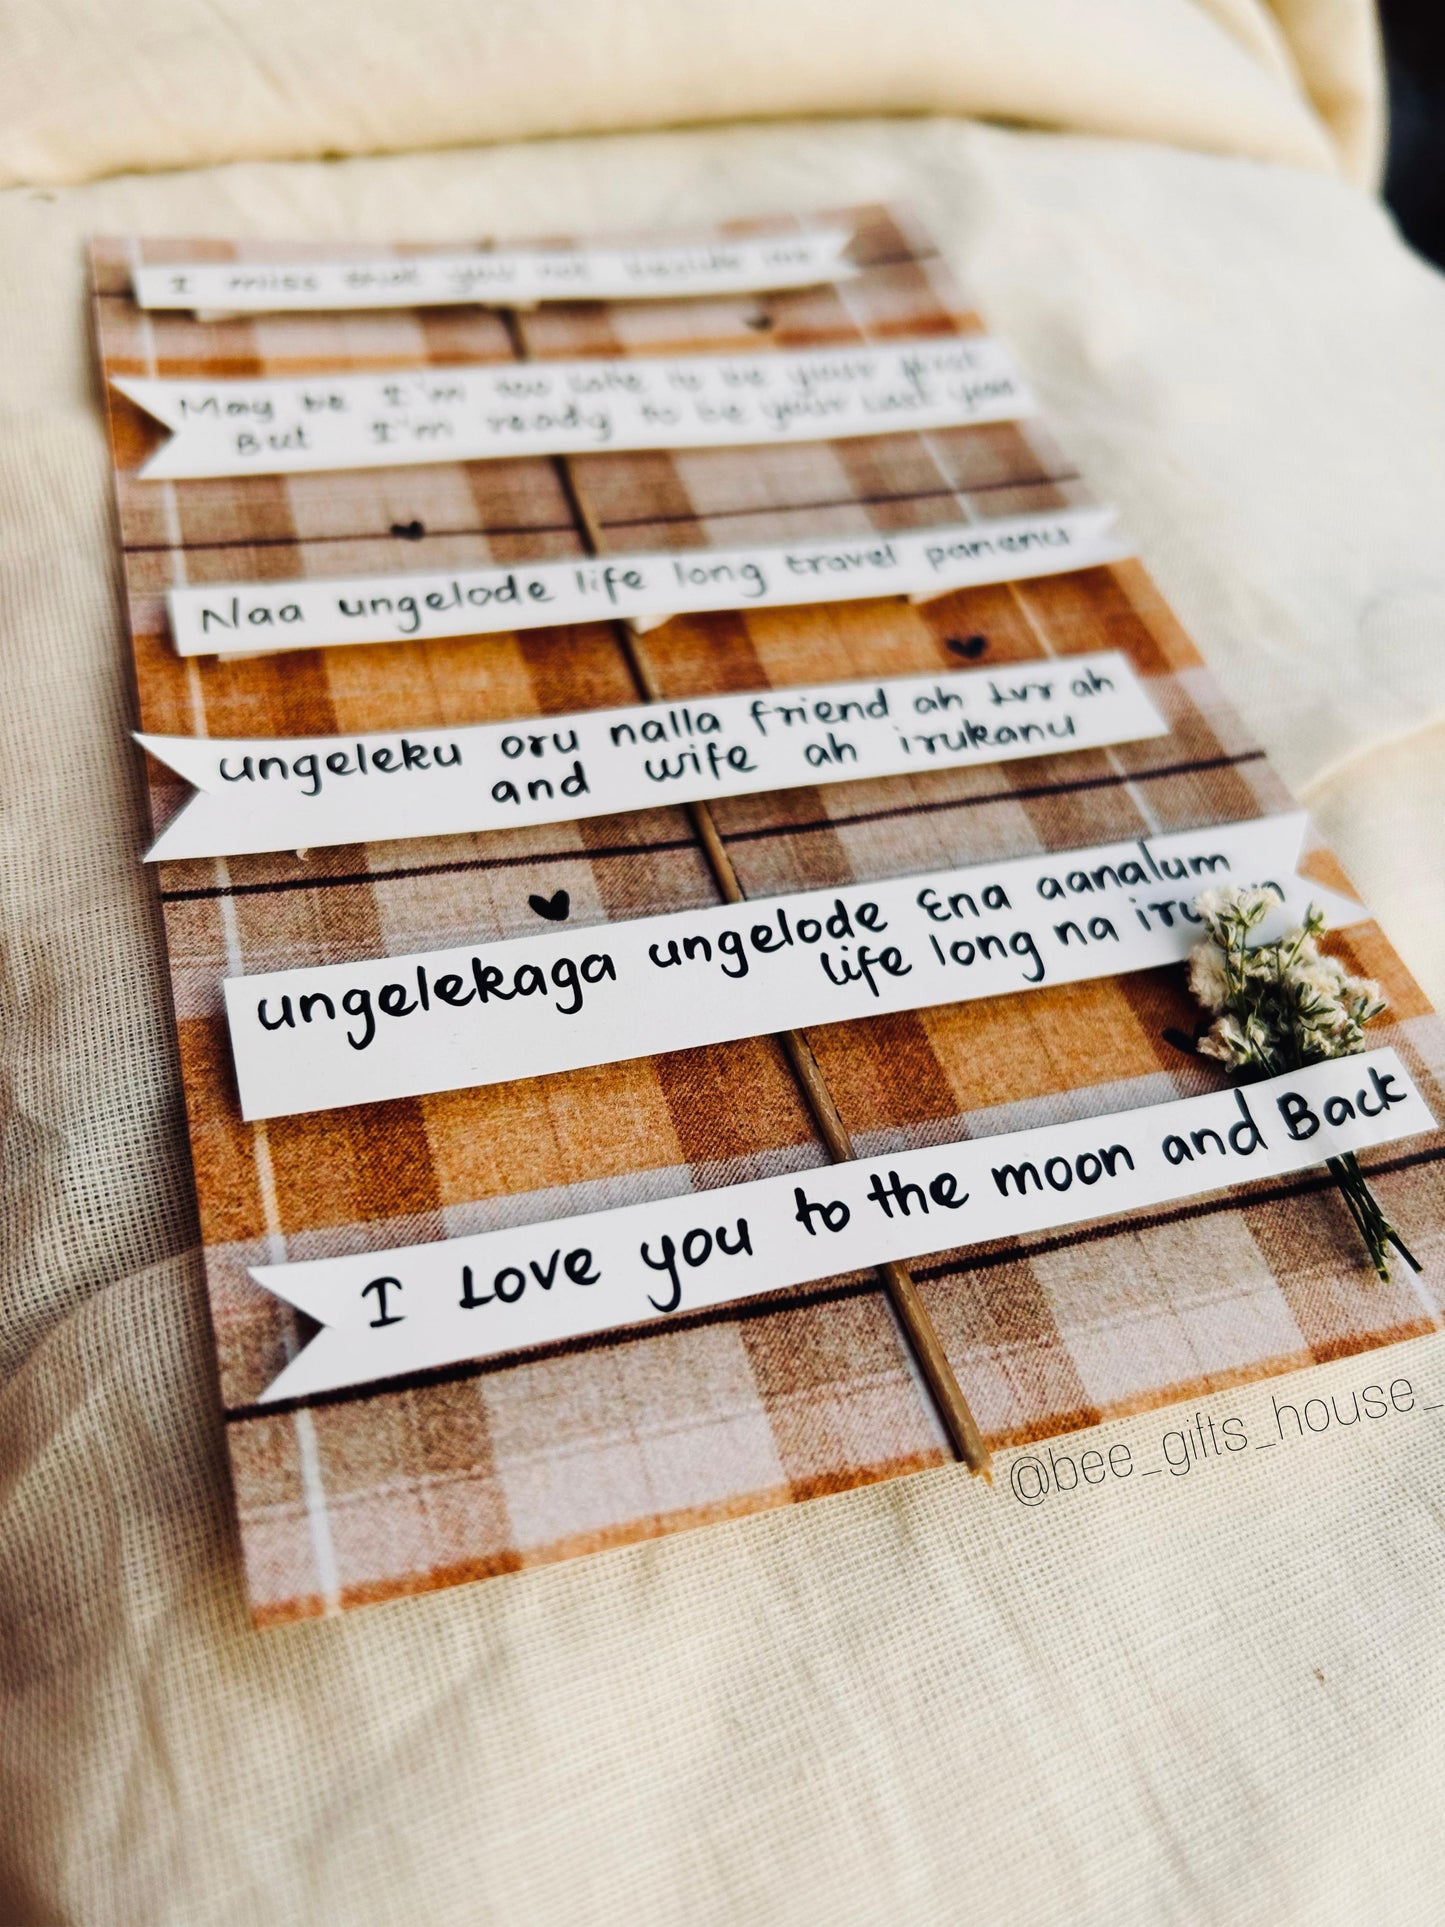 I miss that you not beside me
May be I'm too late to be your first
But I'm ready to be your Last year
Naa ungelode life long travel panenu
ungeleku oru nalla friend ah Lvr ah
and wife ah irukanu
ungelekaga ungelode Ena aanalum
life long na
I Love you to the moon and Back
@bee_gifts_house_